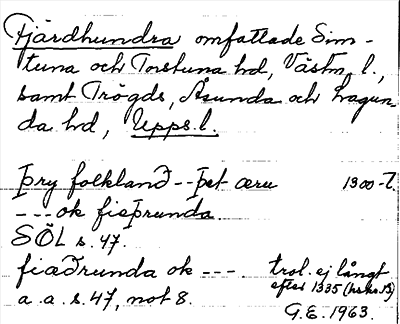 Fjärdhundra omfattade Sim-
tuna och Torstuna hd, Västm. l.,
samt Trögds, Åsunda och Lagun-
da hd, Upps. l.
þry folkland -- þet æru 1300-t.
--- ok fieþrunda.
SÖL s. 47.
fiædrunda ok --- trol. ej långt
efter 1335 (hskr. B)
a. a. s. 47, not 8.
G.E. 1963.